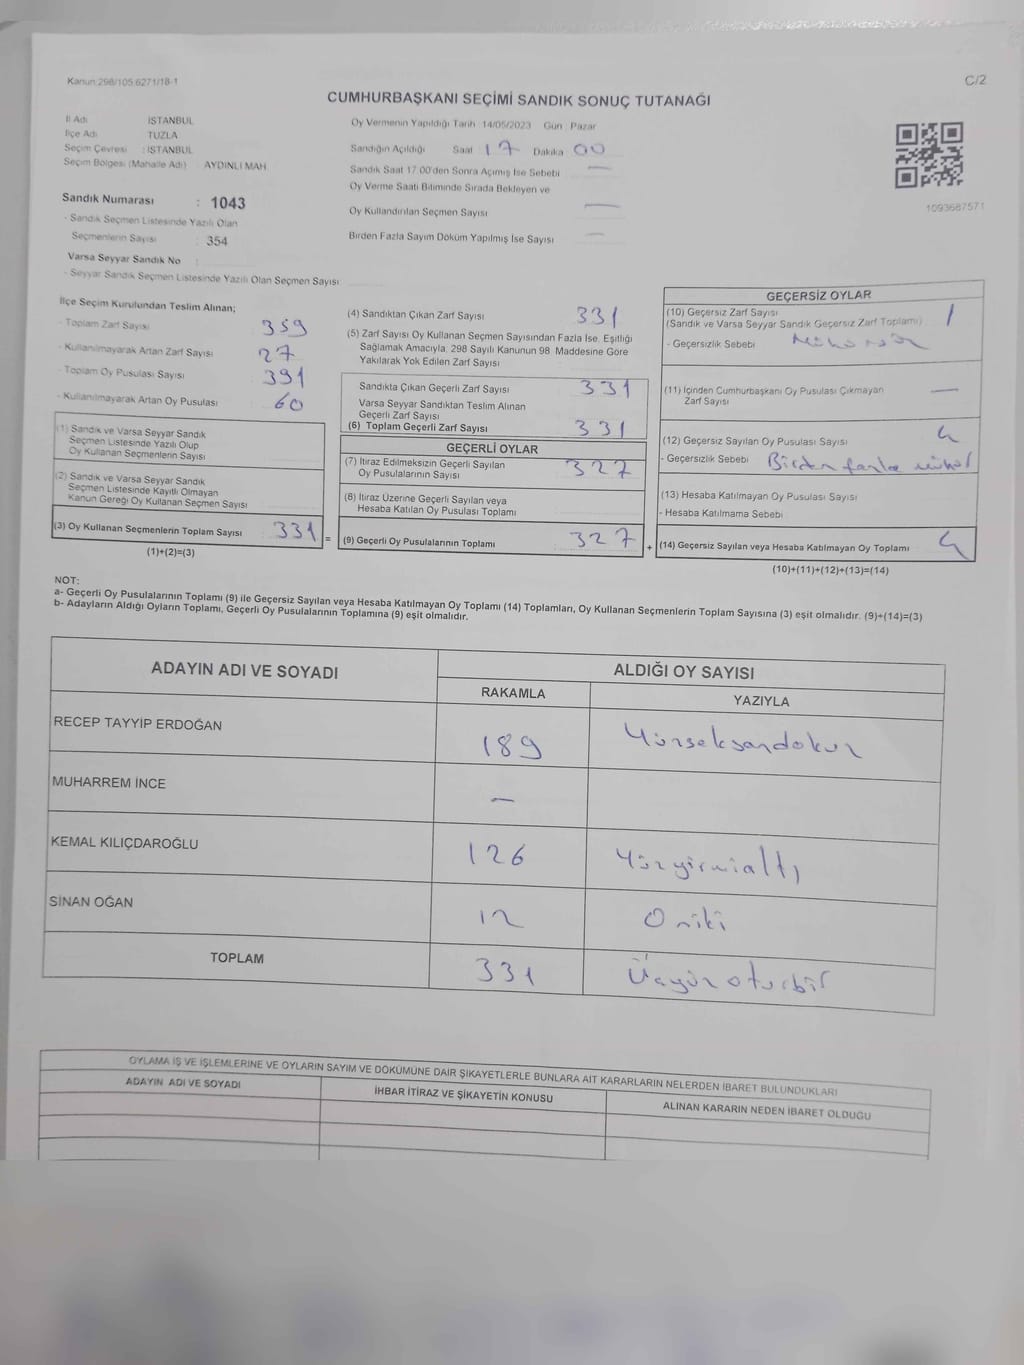 Kanun:298/105.6271/18-1
C/2
CUMHURBAŞKANI SEÇİMİ SANDIK SONUÇ TUTANAĞI
İl Adı : İSTANBUL
İlçe Adı : TUZLA
Seçim Çevresi : İSTANBUL
Seçim Bölgesi (Mahalle Adı) AYDINLI MAH.
Sandık Numarası : 1043
- Sandık Seçmen Listesinde Yazılı Olan
Seçmenlerin Sayısı : 354
Varsa Seyyar Sandık No :
- Seyyar Sandık Seçmen Listesinde Yazılı Olan Seçmen Sayısı:
Oy Vermenin Yapıldığı Tarih 14/05/2023 Gün : Pazar
Sandığın Açıldığı Saat 17 Dakika 00
Sandık Saat 17.00'den Sonra Açımış İse Sebebi —
Oy Verme Saati Bitiminde Sırada Bekleyen ve
Oy Kullandırılan Seçmen Sayısı —
Birden Fazla Sayım Döküm Yapılmış İse Sayısı —
1093687571
İlçe Seçim Kurulundan Teslim Alınan;
- Toplam Zarf Sayısı 359
- Kullanılmayarak Artan Zarf Sayısı 27
- Toplam Oy Pusulası Sayısı 391
- Kullanılmayarak Artan Oy Pusulası 60
(1) Sandık ve Varsa Seyyar Sandık
Seçmen Listesinde Yazılı Olup
Oy Kullanan Seçmenlerin Sayısı
(2) Sandık ve Varsa Seyyar Sandık
Seçmen Listesinde Kayıtlı Olmayan
Kanun Gereği Oy Kullanan Seçmen Sayısı
(3) Oy Kullanan Seçmenlerin Toplam Sayısı 331 =
(1)+(2)=(3)
(4) Sandıktan Çıkan Zarf Sayısı 331
(5) Zarf Sayısı Oy Kullanan Seçmen Sayısından Fazla İse, Eşitliği
Sağlamak Amacıyla, 298 Sayılı Kanunun 98. Maddesine Göre
Yakılarak Yok Edilen Zarf Sayısı
Sandıkta Çıkan Geçerli Zarf Sayısı 331
Varsa Seyyar Sandıktan Teslim Alınan
Geçerli Zarf Sayısı
(6) Toplam Geçerli Zarf Sayısı 331
GEÇERLİ OYLAR
(7) İtiraz Edilmeksizin Geçerli Sayılan
Oy Pusulalarının Sayısı 327
(8) İtiraz Üzerine Geçerli Sayılan veya
Hesaba Katılan Oy Pusulası Toplamı
(9) Geçerli Oy Pusulalarının Toplamı 327 +
GEÇERSİZ OYLAR
(10) Geçersiz Zarf Sayısı
(Sandık ve Varsa Seyyar Sandık Geçersiz Zarf Toplamı) 1
- Geçersizlik Sebebi
(11) İçinden Cumhurbaşkanı Oy Pusulası Çıkmayan
Zarf Sayısı —
(12) Geçersiz Sayılan Oy Pusulası Sayısı 4
- Geçersizlik Sebebi Birden fazla mühür
(13) Hesaba Katılmayan Oy Pusulası Sayısı
- Hesaba Katılmama Sebebi
(14) Geçersiz Sayılan veya Hesaba Katılmayan Oy Toplamı 4
(10)+(11)+(12)+(13)=(14)
NOT:
a- Geçerli Oy Pusulalarının Toplamı (9) ile Geçersiz Sayılan veya Hesaba Katılmayan Oy Toplamı (14) Toplamları, Oy Kullanan Seçmenlerin Toplam Sayısına (3) eşit olmalıdır. (9)+(14)=(3)
b- Adayların Aldığı Oyların Toplamı, Geçerli Oy Pusulalarının Toplamına (9) eşit olmalıdır.
ADAYIN ADI VE SOYADI
ALDIĞI OY SAYISI
RAKAMLA YAZIYLA
RECEP TAYYİP ERDOĞAN 189 Yürseksandokuz
MUHARREM İNCE —
KEMAL KILIÇDAROĞLU 126 Yüzyirmialtı
SİNAN OĞAN 12 Oniki
TOPLAM 331 Üçyüzoturbir
OYLAMA İŞ VE İŞLEMLERİNE VE OYLARIN SAYIM VE DÖKÜMÜNE DAİR ŞİKAYETLERLE BUNLARA AİT KARARLARIN NELERDEN İBARET BULUNDUKLARI
ADAYIN ADI VE SOYADI
İHBAR İTİRAZ VE ŞİKAYETİN KONUSU
ALINAN KARARIN NEDEN İBARET OLDUĞU